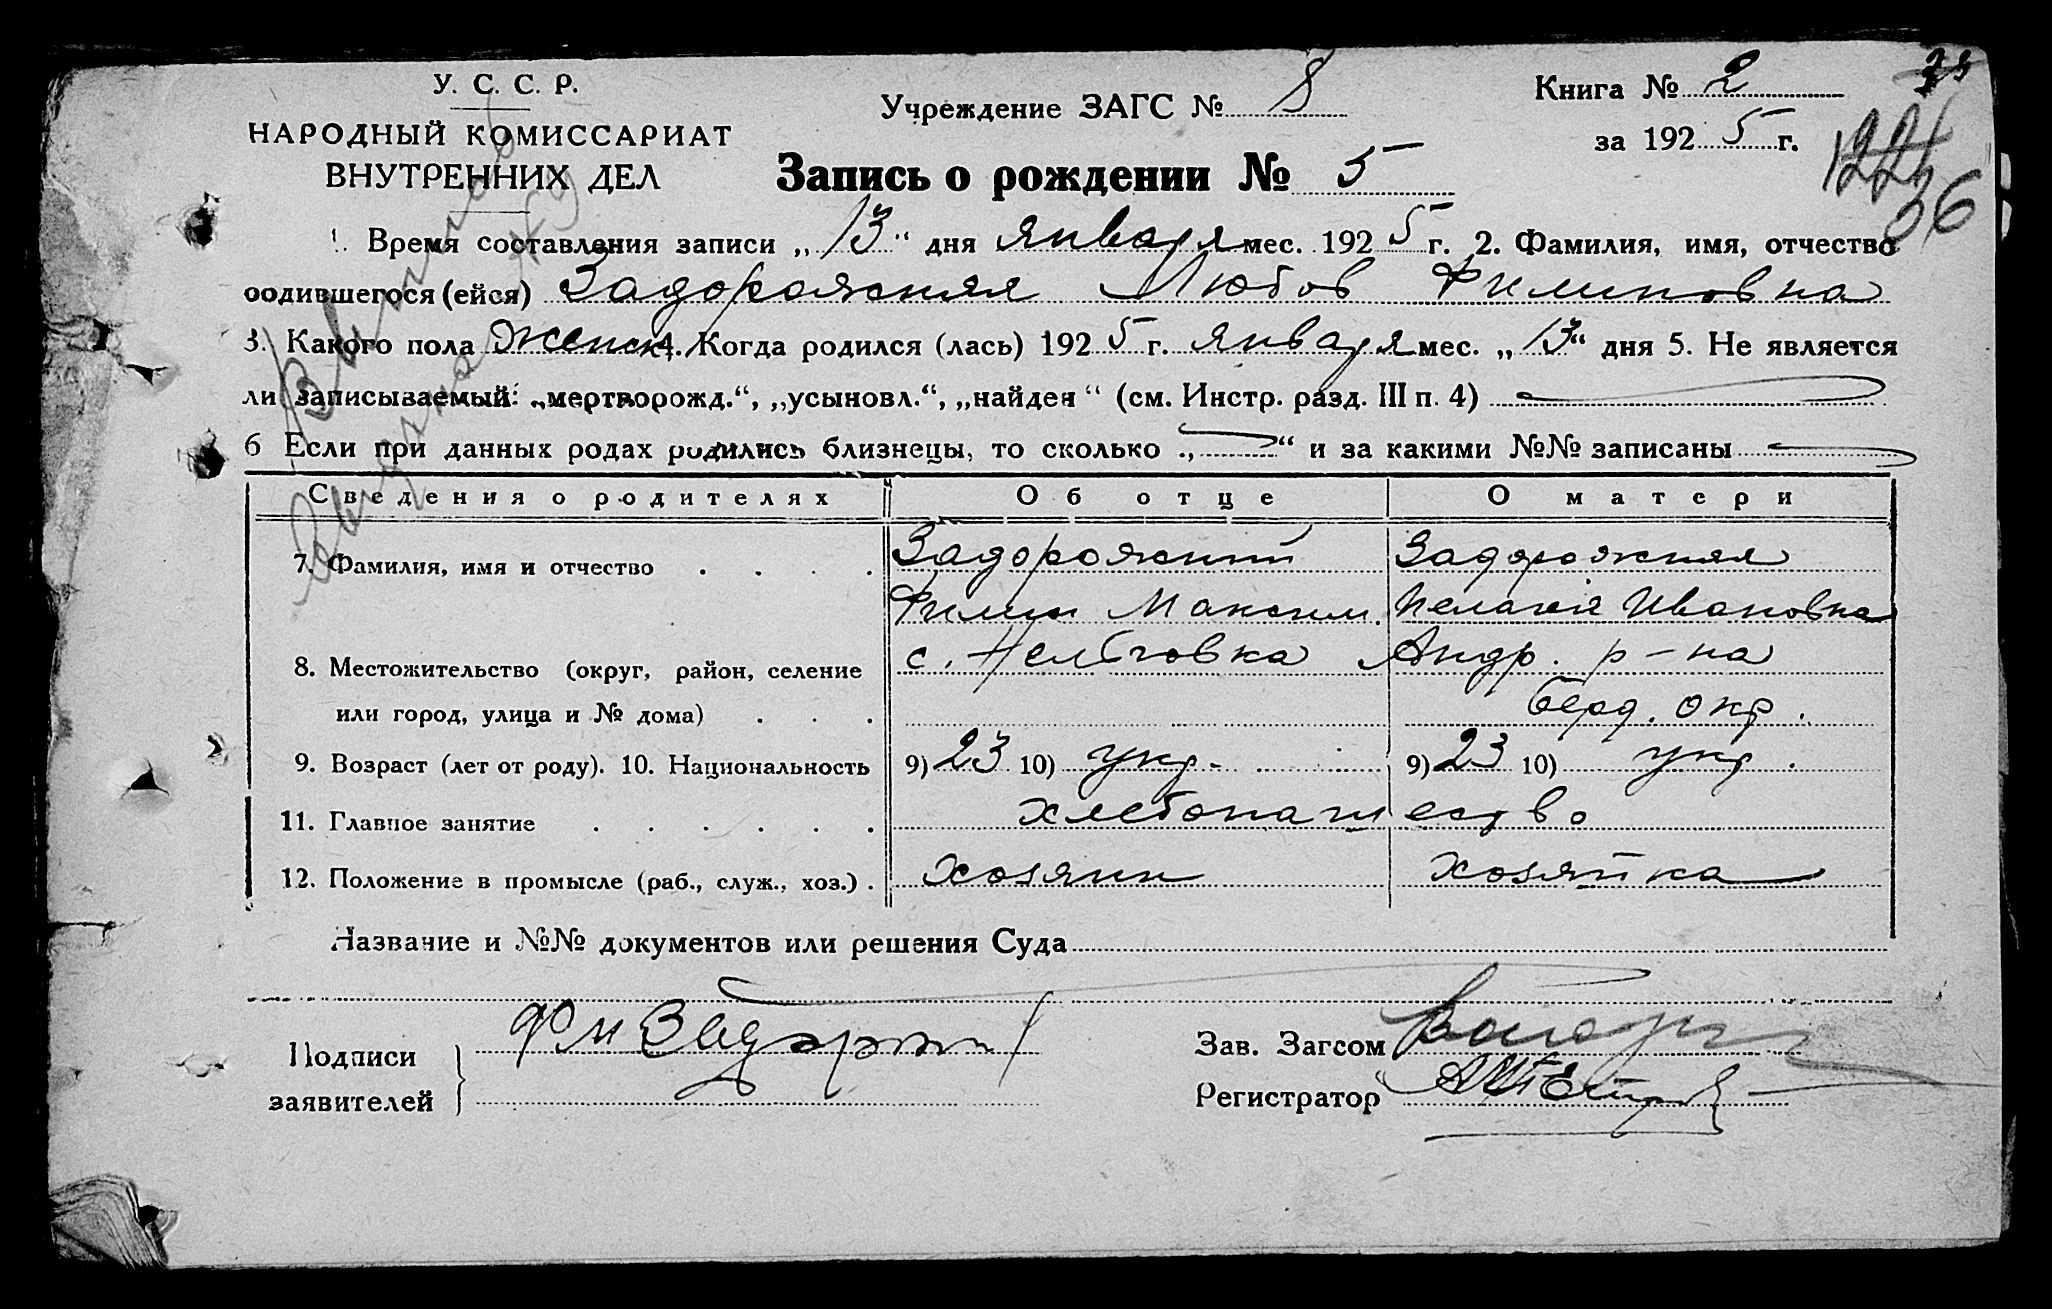 У. С. С. Р.
НАРОДНЫЙ КОМИССАРИАТ
ВНУТРЕННИХ ДЕЛ
Учреждение ЗАГС № 8
Книга № 2
за 1925 г.
36
Запись о рождении № 5
1. Время составления записи „13“ дня января мес. 1925 г. 2. Фамилия, имя, отчество
родившегося (ейся) Задорожняя Любов Филиповна
3. Какого пола женск. 4. Когда родился (лась) 1925 г. января мес. „13“ дня 5. Не является
ли записываемый: „мертворожд.“, „усыновл.“, „найден“ (см. Инстр. разд. III п. 4)
6 Если при данных родах родились близнецы, то сколько „ “ и за какими №№ записаны
Сведения о родителях Об отце О матери
7. Фамилия, имя и отчество Задорожний Задорожняя
Филип Максим. Пелагея Ивановна
8. Местожительство (округ, район, селение с. Андр. р-на
или город, улица и № дома) Берд. окр.
9. Возраст (лет от роду). 10. Национальность 9) 23 10) укр. 9) 23 10) укр.
11. Главное занятие хлебопашество
12. Положение в промысле (раб., служ., хоз.) хозяин хозяйка
Название и №№ документов или решения Суда
Подписи
заявителей
Зав. Загсом
Регистратор